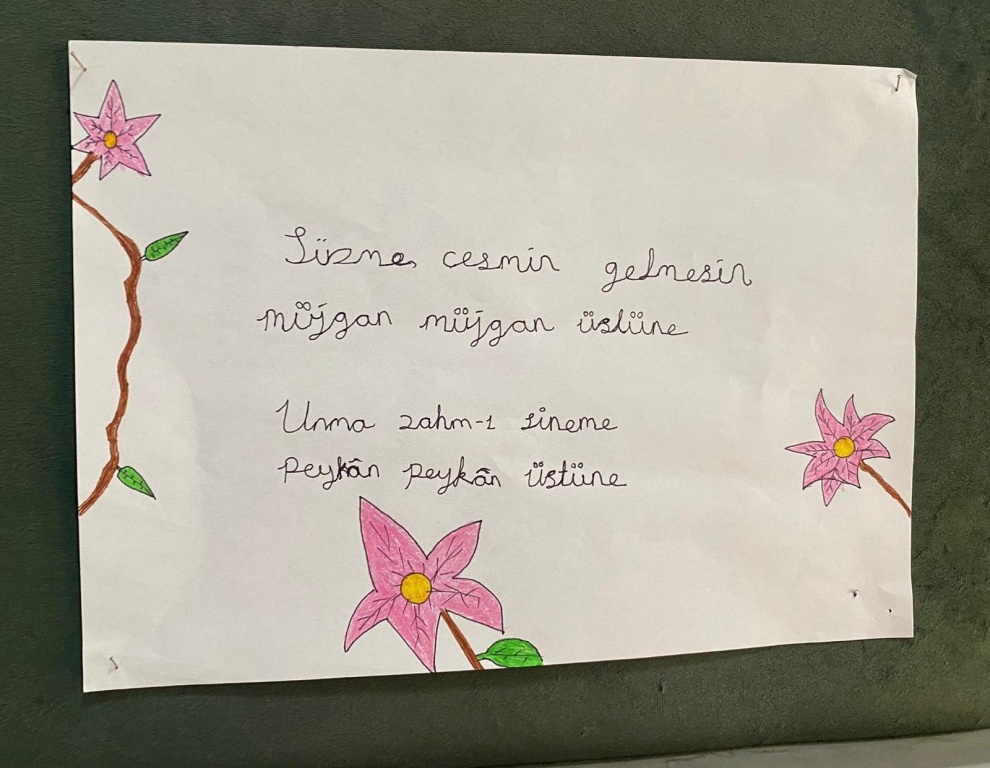 Süzme cesmin gelmesin
müjgan müjgan üstüne
Urma zahm-ı sineme
Peykân peykân üstüne